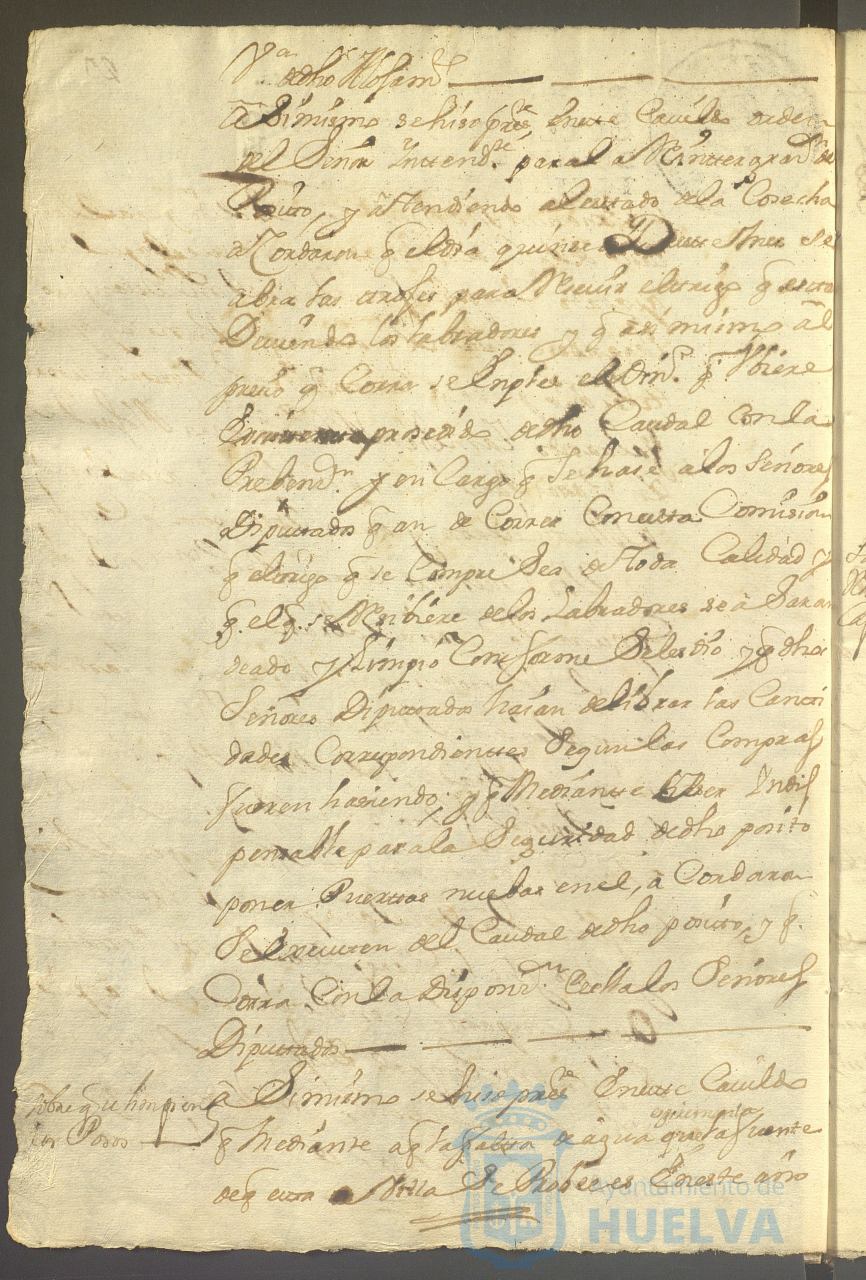 V.a
de dho Rosam.to
a Simismo se hiso pres.te En este Cavildo orden
del Señor Yntend.te para la Reintegrazn. de
Posito, y atendiendo al estado de la Cosecha
acordaron q el dia quinse De este Mes se
abra las troxes para Recivir el trigo q estan
Deviendo los labradores y q asi mismo al
presio q Corra se Enplee el Din.o q Ubiere
prosedido de dho Caudal con la
Prebend.n y en Cargo q Se hase a los Señores
Diputados q an de Correr Con esta Comision
q el trigo q se Compre Sea de toda Calidad y
q. el q. se Resibiere de los Labradores se a Saran
deado y Limpio Conforme Se les dio y q dhos
Señores Diputados haian de librar las Canti
dades Correspondientes Segun las Compras
fueren hasiendo, y q Mediante aber Yndis
pensable para la Seguridad de dho posito
poner Puertas nuebas en el, a Cordaron
Se Executen del Caudal de dho posito, y q.
Corra Con la Dispon.n de ella los Señores
Diputados
Sobre q se limpien
los Posos
a Simismo se hiso pres.te En este Cavildo
q Mediante a q la falta de agua que
la fuente
de q esta Villa Se Probee es En este año
Ayuntamiento de
HUELVA